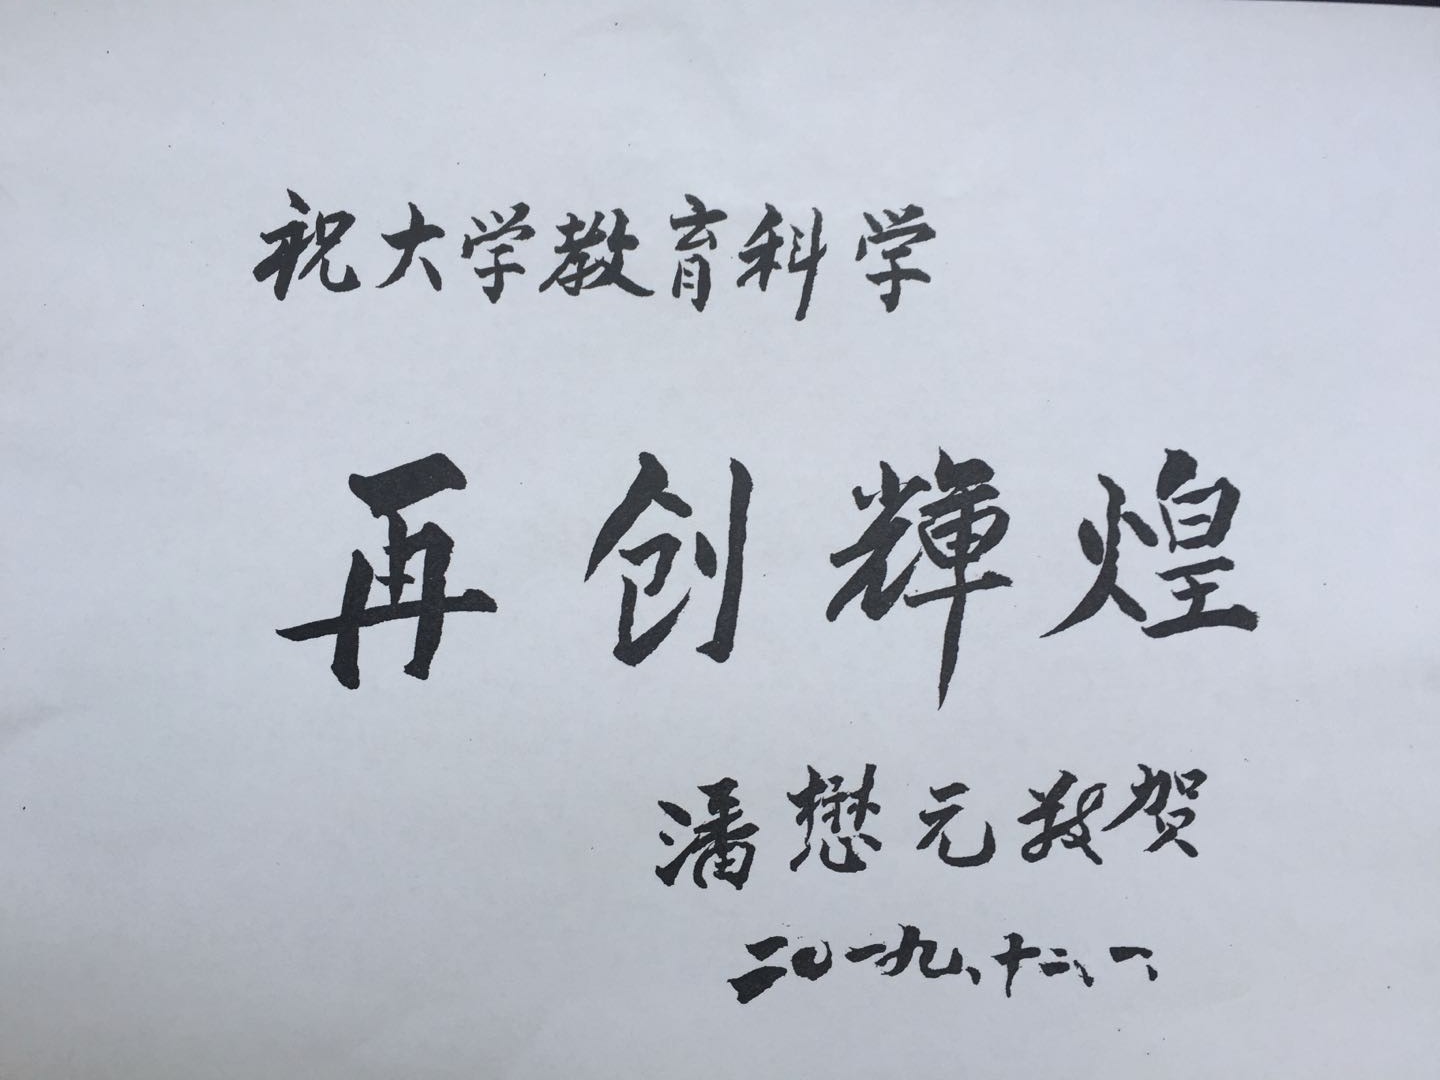 祝大学教育科学
再创輝煌
潘懋元敬贺
二〇一九、十二、一、